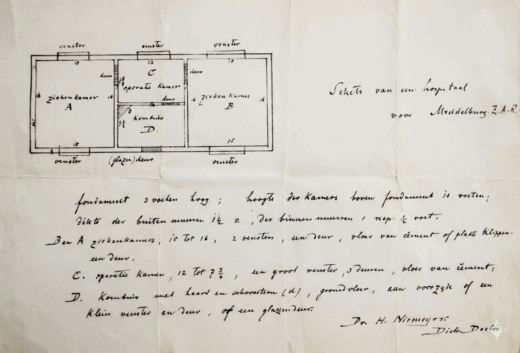 venster venster venster
18 12 18
deur C deur
ziekenkamer operatie kamer ziekenkamer
A deur B
16 16 16
Kombuis
D.
15
venster (glazen) deur venster
Schets van een hospitaal
voor Middelburg. Z.A.R.
fondament 3 voeten hoog; hoogte der kamers boven fondament 10 voeten;
dikte der buiten muuren 1½ v., der binnen muuren 1 resp. ½ voet.
B en A ziekenkamers, 18 tot 16, 2 vensters, een deur, vloer van cement of platte klippen.
een deur.
C. operatie kamer, 12 tot 7¾, een groot venster, 3 deuren, vloer van cement;
D. Kombuis met haard en schoorsteen (d), grondvloer, aan voorzijde of een
klein venster en deur, of een glazendeur.
Dr. H. Niemeyer.